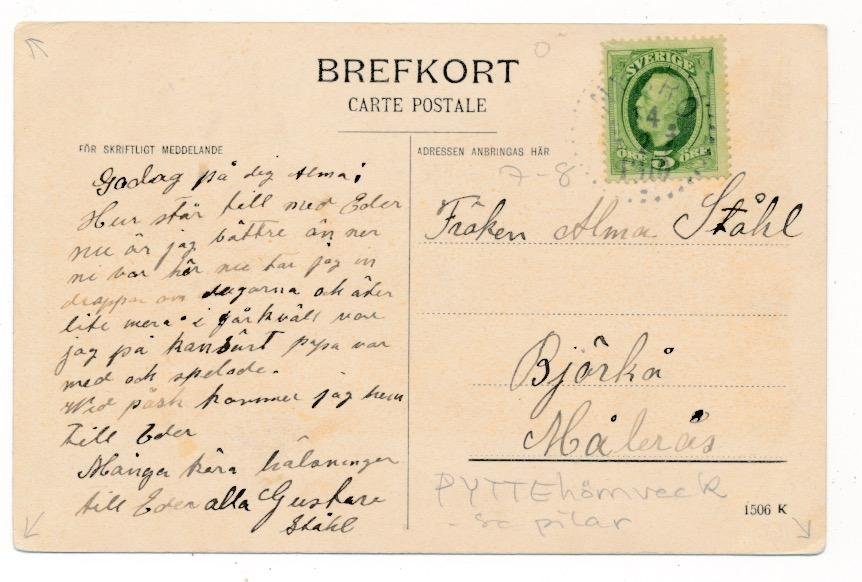 BREFKORT
CARTE POSTALE
SVERIGE
5
ÖRE
FÖR SKRIFTLIGT MEDDELANDE
Godag på dig Alma!
Hur står till med Eder
nu är jag bättre än ner
ni var här nu tar jag in
droppar om dagarna och äter
lite mera i går kväll var
jag på kansärt papa var
med och spelade.
Wid påsk kommer jag hem
till Eder
Många kära hälsninger
till Eder alla Gustava
Ståhl
ADRESSEN ANBRINGAS HÄR
7-8
Fröken Alma Ståhl
Björkå
Målerås
PYTTEhörnveck
se pilar
1506 K